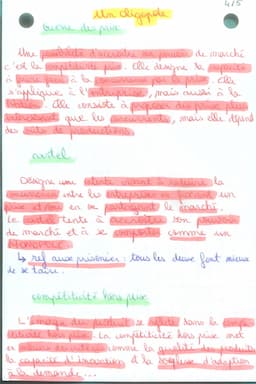 4/5
Un Oligopole
Guerre des prix
Une possibilité d'accroître son pouvoir de marché
c'est la compétitivité prix. Elle désigne la capacité
à faire face à la concurrence par le prix. Elle
s'applique à l'entreprise, mais aussi à la
nation. Elle consiste à proposer des prix plus
intéressant que les concurrents, mais elle dépend
des coûts de productions.
cartel
Désigne une entente visant à réduire la
concurrence entre les entreprises en fixant un
prix et/ou en se partageant le marché.
Le cartel tente à accroître son pouvoir
de marché et à se comporter comme un
MONOPOLE.
↳ ref aux prisonnier : tous les deux font mieux
de se taire.
compétitivité hors prix
L'énergie du produit se reflète dans la compé-
titivité hors prix. La compétitivité hors prix met
en comme la qualité des produits
la capacité d'innovation et la souplesse d'adaption
à la demande...